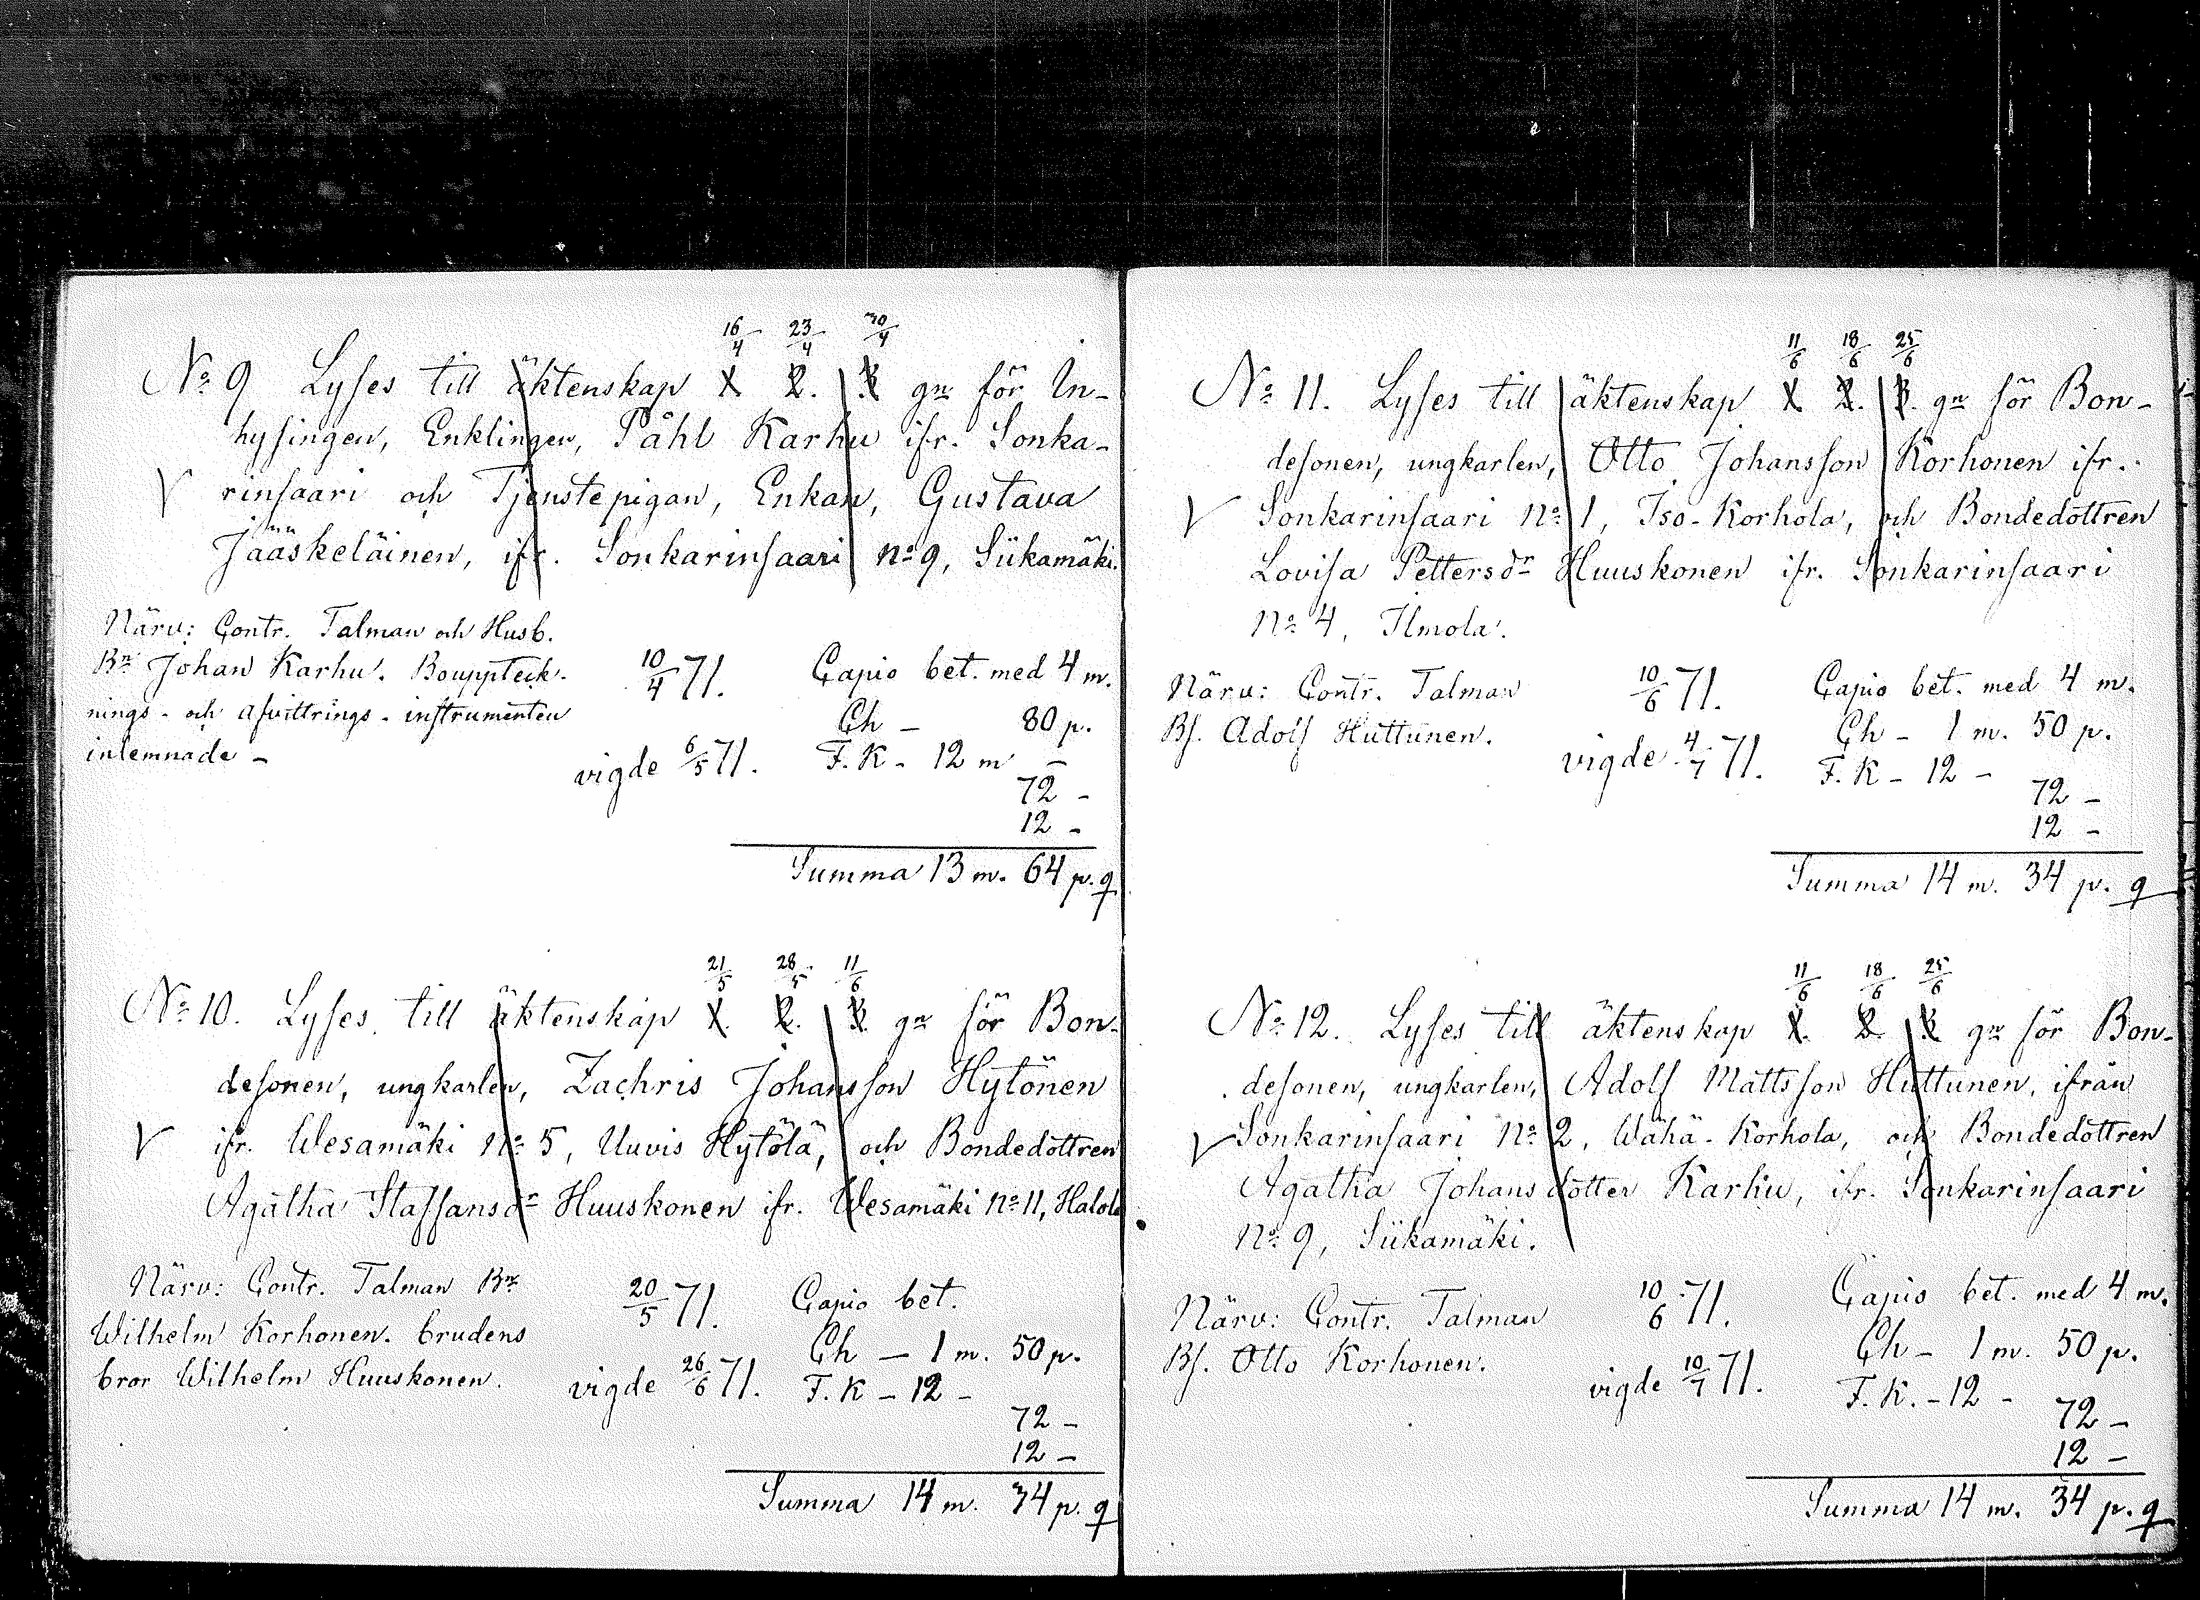 16/4 23/4 30/4
No 9 Lyses till äktenskap 1. 2. 3. gn för In-
hysingen, Enklingen, Påhl Karhu ifr. Sonka-
V rinsaari och Tjenstepigan, Enkan, Gustava
Jääskeläinen, ifr. Sonkarinsaari no 9, Siikamäki.
Närv: Contr. Talman och Husb.
Bn Johan Karhu. Bouppteck-
nings- och afvittrings-instrumenten
inlemnade -
10/4 71.
vigde 6/5 71.
Capio bet. med 4 m.
Ch - 80 p.
F. K - 12 m -
72 -
12 -
Summa 13 m. 64 p.
21/5 28/5 11/6
No 10. Lyses till äktenskap 1. 2. 3. gn för Bon-
desonen, ungkarlen, Zachris Johansson Hytönen
V ifr. Wesamäki No 5, Uuvis Hytölä, och Bondedottren
Agatha Staffansdr Huuskonen ifr. Wesamäki No 11, Halola
Närv: Contr. Talman Bn
Wilhelm Korhonen. brudens
bror Wilhelm Huuskonen.
20/5 71.
vigde 26/6 71.
Capio bet.
Ch - 1 m. 50 p.
F. K - 12 -
72 -
12 -
Summa 14 m. 34 p.
11/6 18/6 25/6
No 11. Lyses till äktenskap 1. 2. 3. gn för Bon-
desonen, ungkarlen, Otto Johansson Korhonen ifr.
V Sonkarinsaari No 1, Iso-Korhola, och Bondedottren
Lovisa Pettersdr Huuskonen ifr. Sonkarinsaari
No 4, Ilmola.
Närv: Contr. Talman
Bs. Adolf Huttunen.
10/6 71.
vigde 4/7 71.
Capio bet. med 4 m.
Ch - 1 m. 50 p.
F. K - 12 -
72 -
12 -
Summa 14 m. 34 p.
11/6 18/6 25/6
No 12. Lyses till äktenskap 1. 2. 3. gn för Bon-
desonen, ungkarlen, Adolf Mattsson Huttunen, ifrån
V Sonkarinsaari No 2, Wähä-Korhola, och Bondedottren
Agatha Johansdotter Karhu, ifr. Sonkarinsaari
No 9, Siikamäki.
Närv: Contr. Talman
Bs. Otto Korhonen.
10/6 71.
vigde 10/7 71.
Capio bet. med 4 m.
Ch - 1 m. 50 p.
F. K. - 12 -
72 -
12 -
Summa 14 m. 34 p.